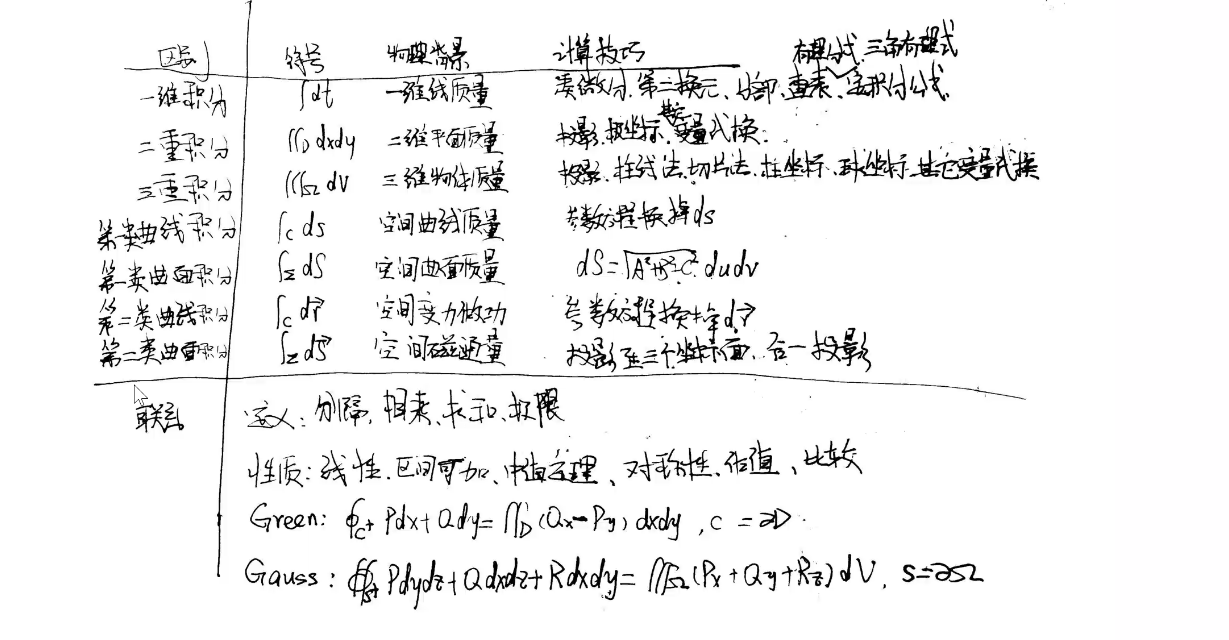 有理分式 三角有理式
区别 符号 物理背景 计算技巧
一维积分 ∫dt 一维线质量 凑微分、第二换元、分部、查表、定积分公式
二重积分 ∬_D dxdy 二维平面质量 投影、极坐标、其它变量代换.
三重积分 ∭_Ω dV 三维物体质量 投影、柱线法、切片法、柱坐标、球坐标、其它变量代换
第一类曲线积分 ∫_C ds 空间曲线质量 参数方程换掉ds
第一类曲面积分 ∫_Σ dS 空间曲面质量 dS=√(A²+B²+C²) dudv
第二类曲线积分 ∫_C dr⃗ 空间变力做功 参数方程换掉dr⃗
第二类曲面积分 ∫_Σ dS⃗ 空间磁通量 投影至三个坐标面、合一投影
联系 定义: 分隔、相乘、求和、极限
性质: 线性、区间可加、中值定理、对称性、估值、比较
Green: ∮_C+ Pdx+Qdy=∬_D (Qx-Py) dxdy, C=∂D.
Gauss: ∯_S+ Pdydz+Qdxdz+Rdxdy=∭_Ω (Px+Qy+Rz) dV, S=∂Ω